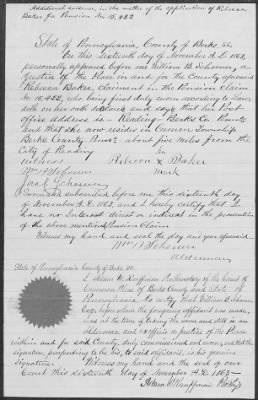 Additional evidence in the matter of the application of Rebecca
Baker for Pension No. 15,422
State of Pennsylvania, County of Berks ss.
On this sixteenth day of November A.D. 1863,
personally appeared before me William B. Schoener, a
Justice of the Peace in and for the County aforesaid
Rebecca Baker, claimant in the Pension Claim
No. 15,422, who being first duly sworn according to law,
doth on her oath depose and say that her Post
office address is - Reading - Berks Co. Penna
and that she now resides in Cumru Township
Berks County Penna - about five miles from the
City of Reading
her
witness Rebecca X Baker
Wm B Schoener mark
Schoener
Sworn and subscribed before me this sixteenth day of
November A.D. 1863, and I hereby certify that I
have no interest direct or indirect in the prosecution
of the above mentioned Pension Claim.
Witness my hand and seal the day and year aforesaid
Wm B Schoener
Alderman
State of Pennsylvania County of Berks ss.
I Adam W. Kauffman Prothonotary of the Court of
Common Pleas of Berks County and State of
Pennsylvania Do certify that William B Schoener
Esq., before whom the foregoing affidavit was made,
was at the time of taking the same and still is an
Alderman, and ex officio a Justice of the Peace
within and for said County, duly commissioned and sworn, and that the
signature, purporting to be his, to said affidavit, is his genuine
signature. Witness my hand and the seal of our
Court this sixteenth day of November A.D. 1863 -
Adam W Kauffman Prothy